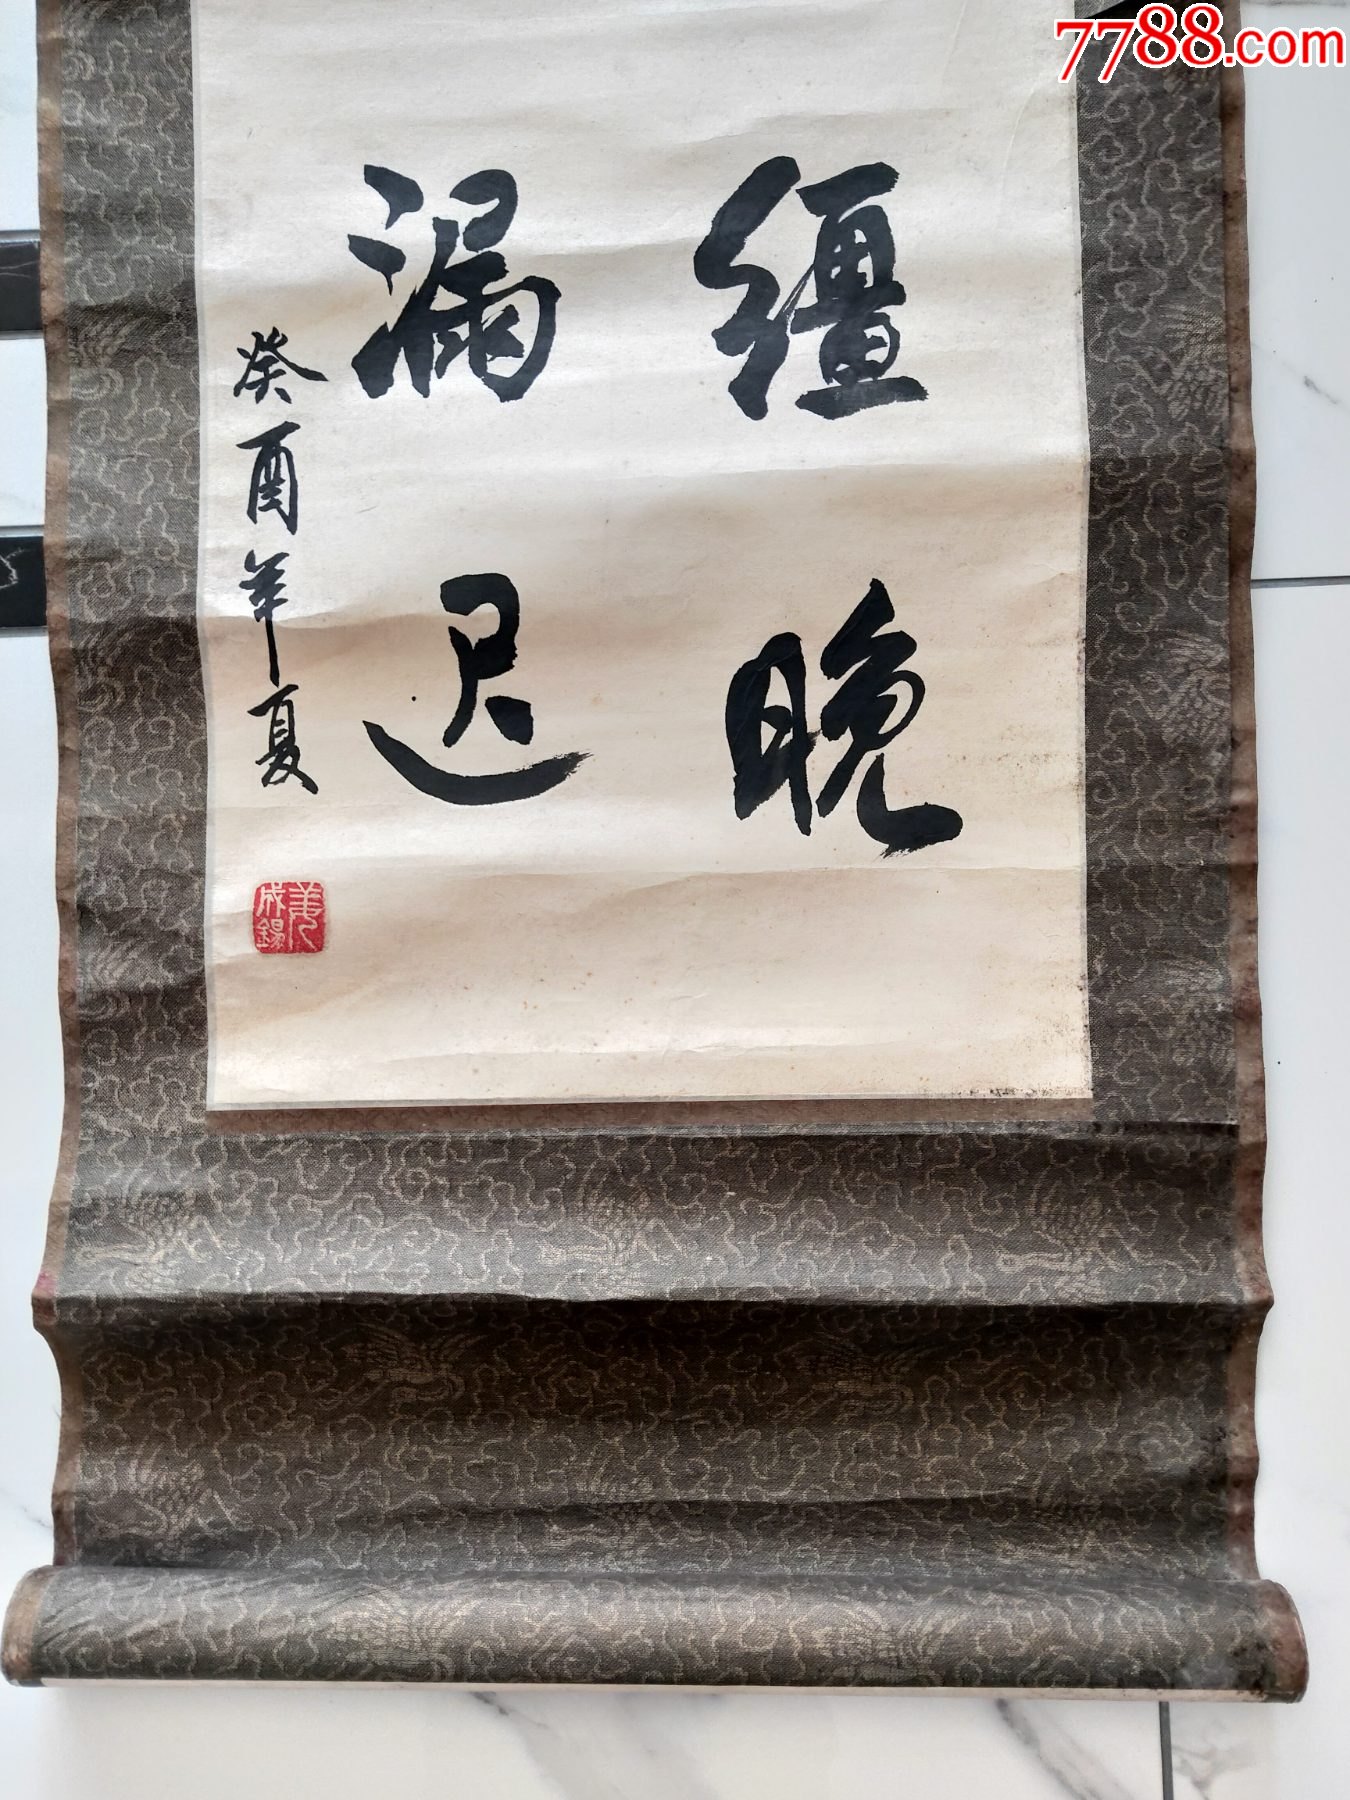 7788.com
缰晚
漏迟
癸酉年夏
姜成錫